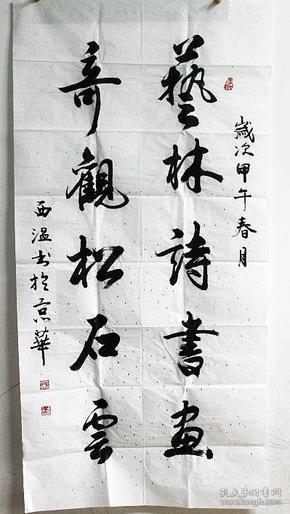 歲次甲午春月
藝林詩書畫
奇觀松石雲
西溫书於京華
孔夫子旧书网